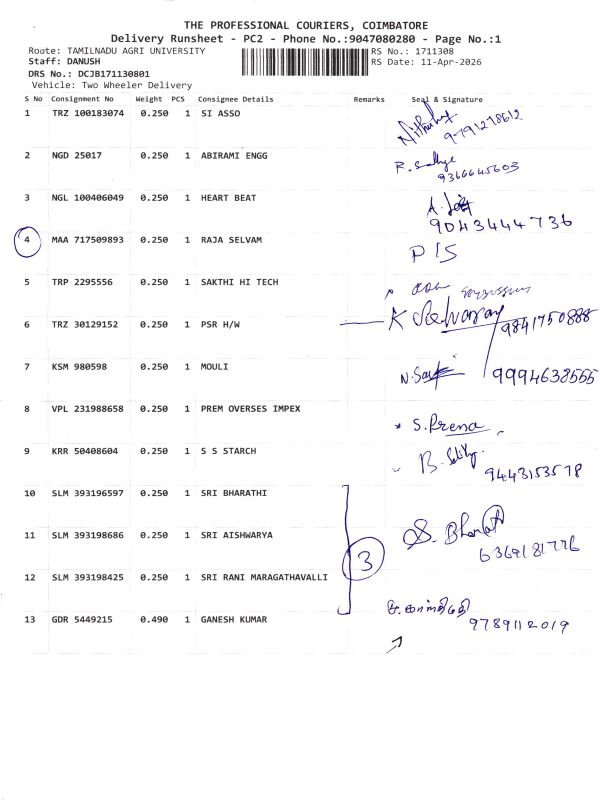 THE PROFESSIONAL COURIERS, COIMBATORE
Delivery Runsheet - PC2 - Phone No.:9047080280 - Page No.:1
Route: TAMILNADU AGRI UNIVERSITY RS No.: 1711308
Staff: DANUSH RS Date: 11-Apr-2026
DRS No.: DCJB171130801
Vehicle: Two Wheeler Delivery
S No Consignment No Weight PCS Consignee Details Remarks Seal & Signature
1 TRZ 100183074 0.250 1 SI ASSO
9791278612
2 NGD 25017 0.250 1 ABIRAMI ENGG
9366645603
3 NGL 100406049 0.250 1 HEART BEAT
9043444736
4 MAA 717509893 0.250 1 RAJA SELVAM P15
5 TRP 2295556 0.250 1 SAKTHI HI TECH
6 TRZ 30129152 0.250 1 PSR H/W K Selvaraj 9841750888
7 KSM 980598 0.250 1 MOULI 9994638555
8 VPL 231988658 0.250 1 PREM OVERSES IMPEX S. Prema
9 KRR 50408604 0.250 1 S S STARCH B.
9443153578
10 SLM 393196597 0.250 1 SRI BHARATHI
11 SLM 393198686 0.250 1 SRI AISHWARYA S. Bharath
3 6369181776
12 SLM 393198425 0.250 1 SRI RANI MARAGATHAVALLI
13 GDR 5449215 0.490 1 GANESH KUMAR
9789112019